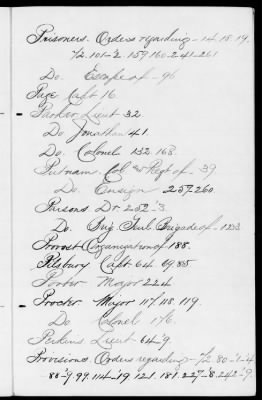 Prisoners. Orders regarding - 14. 18. 19.
72. 101-2 159. 160. 241-261
Do. Escape of - 96
Page Capt 16.
Parker Lieut 32
Do Jonathan 41.
Do. Colonel 132. 168.
Putnam. Col & Regt of. 39
Do. Ensign 257-260
Parsons Dr 252-3
Do. Brig Genl Brigade of -
Provost Organization of 188.
Pilsbury Capt 64. 69. 85
Porter Major 224
Procter Major 117. 118. 119.
Do Colonel 176.
Perkins Lieut 64-9.
Provisions. Orders regarding - 72. 80-1-4
88-9. 99. 114-19 121. 181. 227-8. 242-9